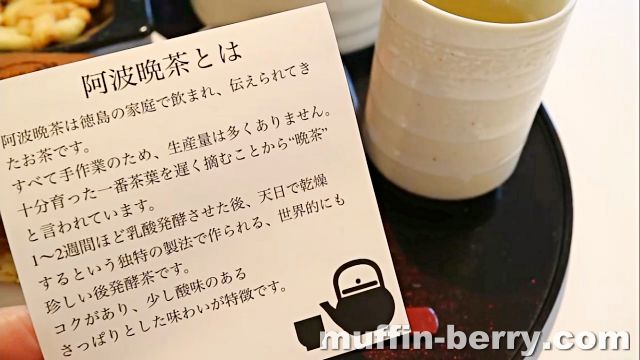 阿波晩茶とは
阿波晩茶は徳島の家庭で飲まれ、伝えられてき
たお茶です。
すべて手作業のため、生産量は多くありません。
十分育った一番茶葉を遅く摘むことから“晩茶”
と言われています。
1〜2週間ほど乳酸発酵させた後、天日で乾燥
するという独特の製法で作られる、世界的にも
珍しい後発酵茶です。
コクがあり、少し酸味のある
さっぱりとした味わいが特徴です。
muffin-berry.com